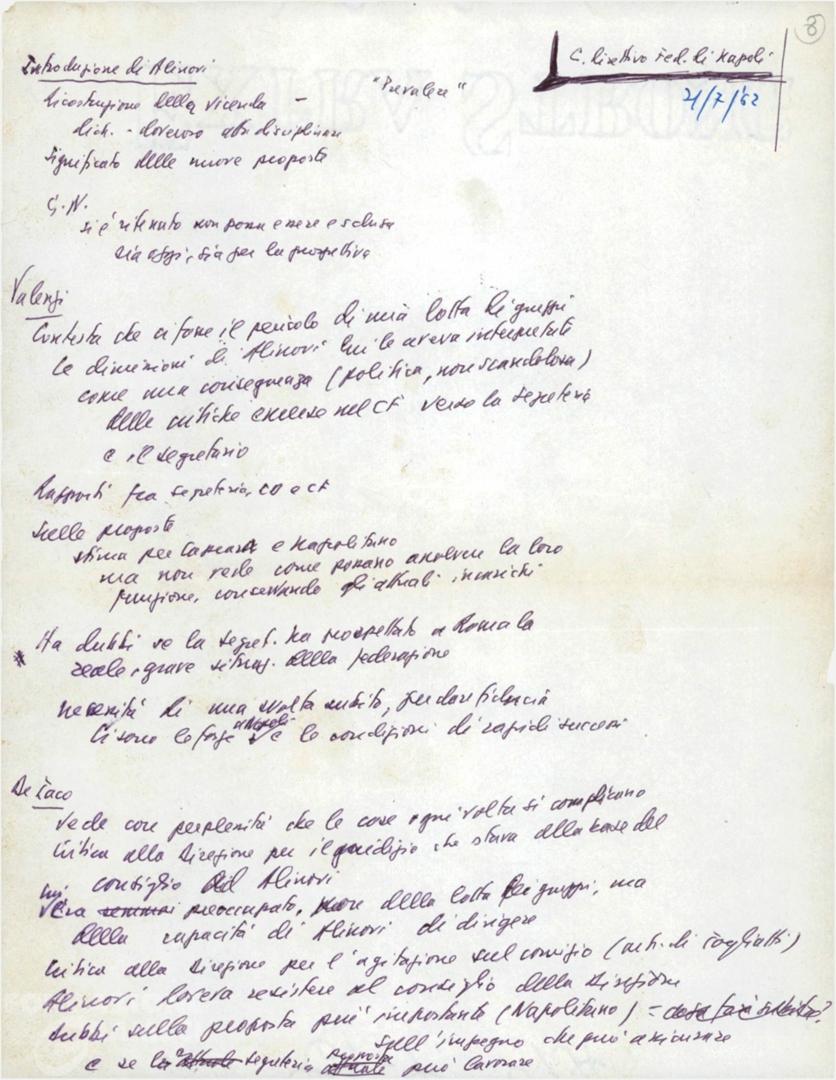 8
C. Direttivo Fed. di Napoli
21/7/62
Introduzione di Alinovi
"Prevalere"
Ricostruzione della vicenda -
dich. - doveroso atto disciplinare
Significato delle nuove proposte
G. N.
si è ritenuto non possa essere esclusa
sia oggi, sia per la prospettiva
Valenzi
Contesta che ci fosse il pericolo di una lotta di gruppi
Le dimissioni di Alinovi lui le aveva interpretate
come una conseguenza (politica, non scandalosa)
delle critiche emerse nel CF verso la segreteria
e il segretario
Rapporti fra segreteria, CD e CF
Sulle proposte
stima per e Napolitano
ma non vede come possano assolvere la loro
funzione, conservando gli attuali incarichi
Ha dubbi se la segret. ha prospettato a Roma la
reale, grave situaz. della federazione
necessità di una svolta subito, per dare fiducia
Ci sono le forze a Napoli e le condizioni di rapidi successi
De Iaco
Vede con perplessità che le cose ogni volta si complicano
Critica alla Direzione per il giudizio che stava alla base del
consiglio ad Alinovi
Lui era preoccupato, non della lotta di gruppi, ma
della capacità di Alinovi di dirigere
Critica alla Direzione per l'agitazione sul comizio (art. di Togliatti)
Alinovi doveva resistere al consiglio della Direzione
Dubbi sulla proposta più importante (Napolitano) -
sull'impegno che può assicurare
e se la segreteria proposta può lavorare